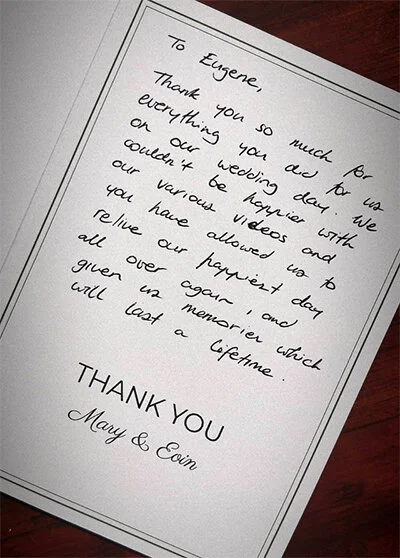 To Eugene,
Thank you so much for
everything you did for us
on our wedding day. We
couldn't be happier with
our various videos and
you have allowed us to
relive our happiest day
all over again, and
given us memories which
will last a lifetime.
THANK YOU
Mary & Eoin